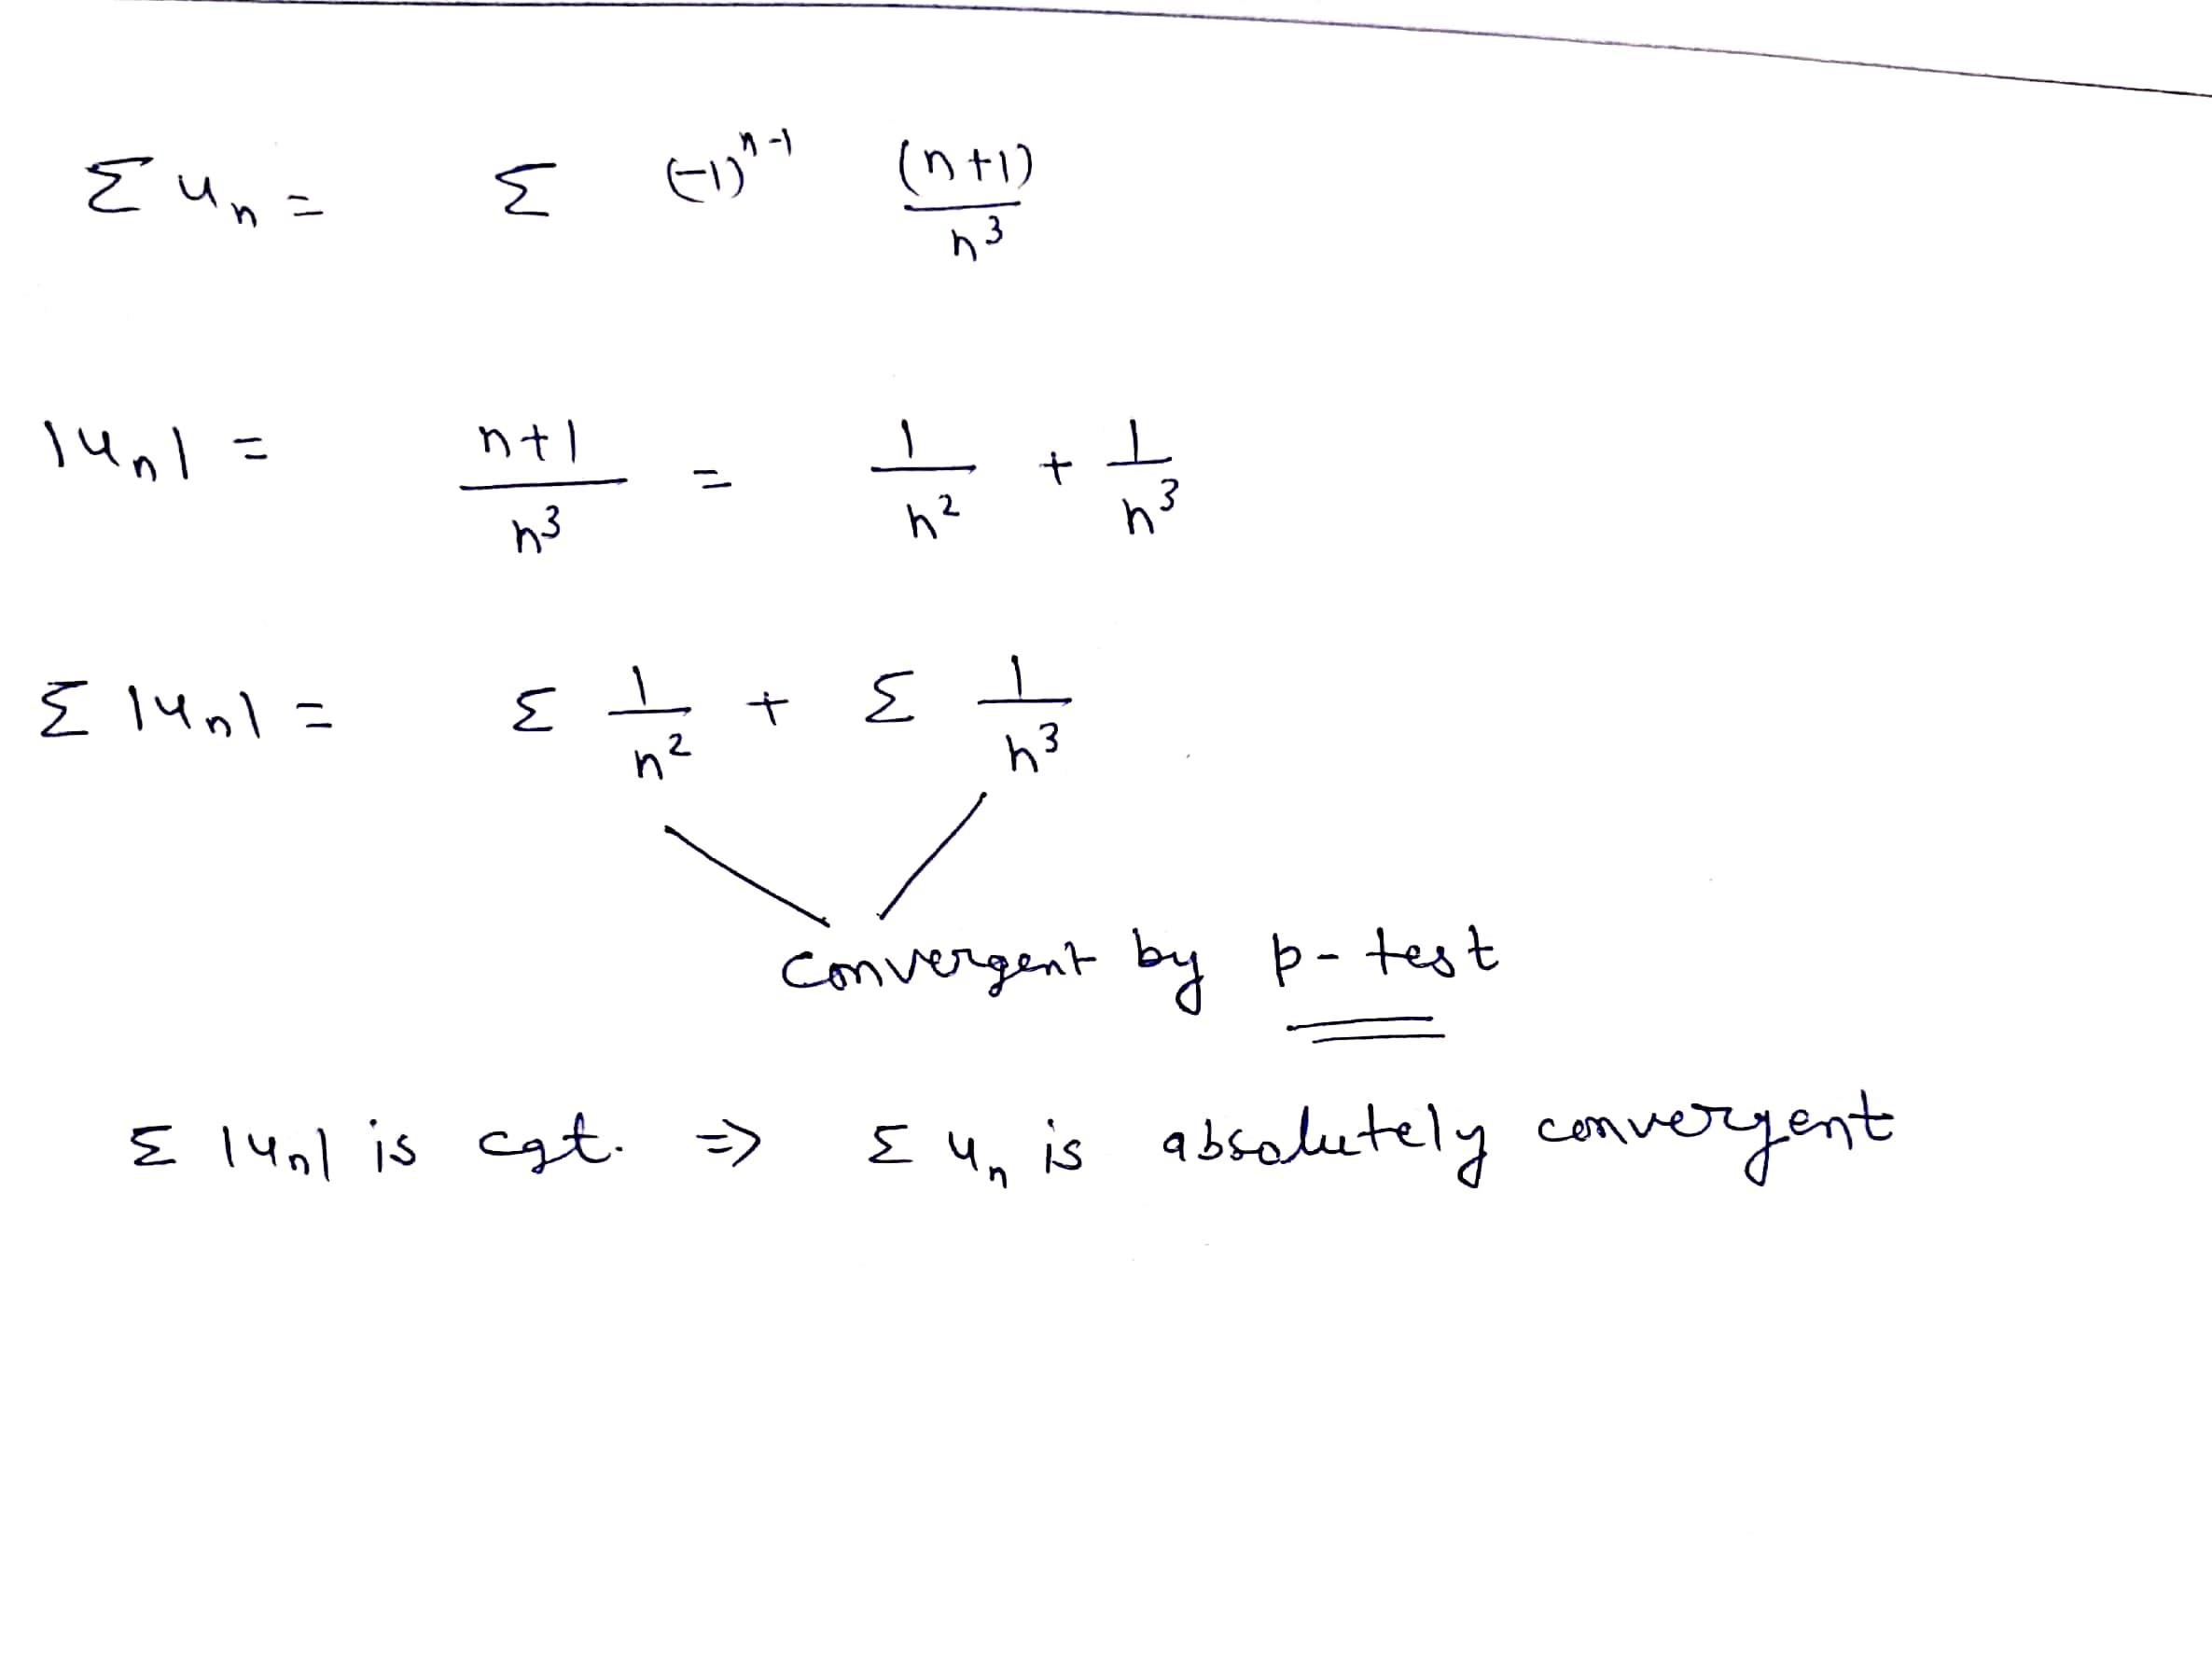 Σ uₙ = Σ (-1)ⁿ⁻¹ (n+1)/n³
|uₙ| = n+1/n³ = 1/n² + 1/n³
Σ |uₙ| = Σ 1/n² + Σ 1/n³
convergent by p-test
Σ |uₙ| is cgt. => Σ uₙ is absolutely convergent